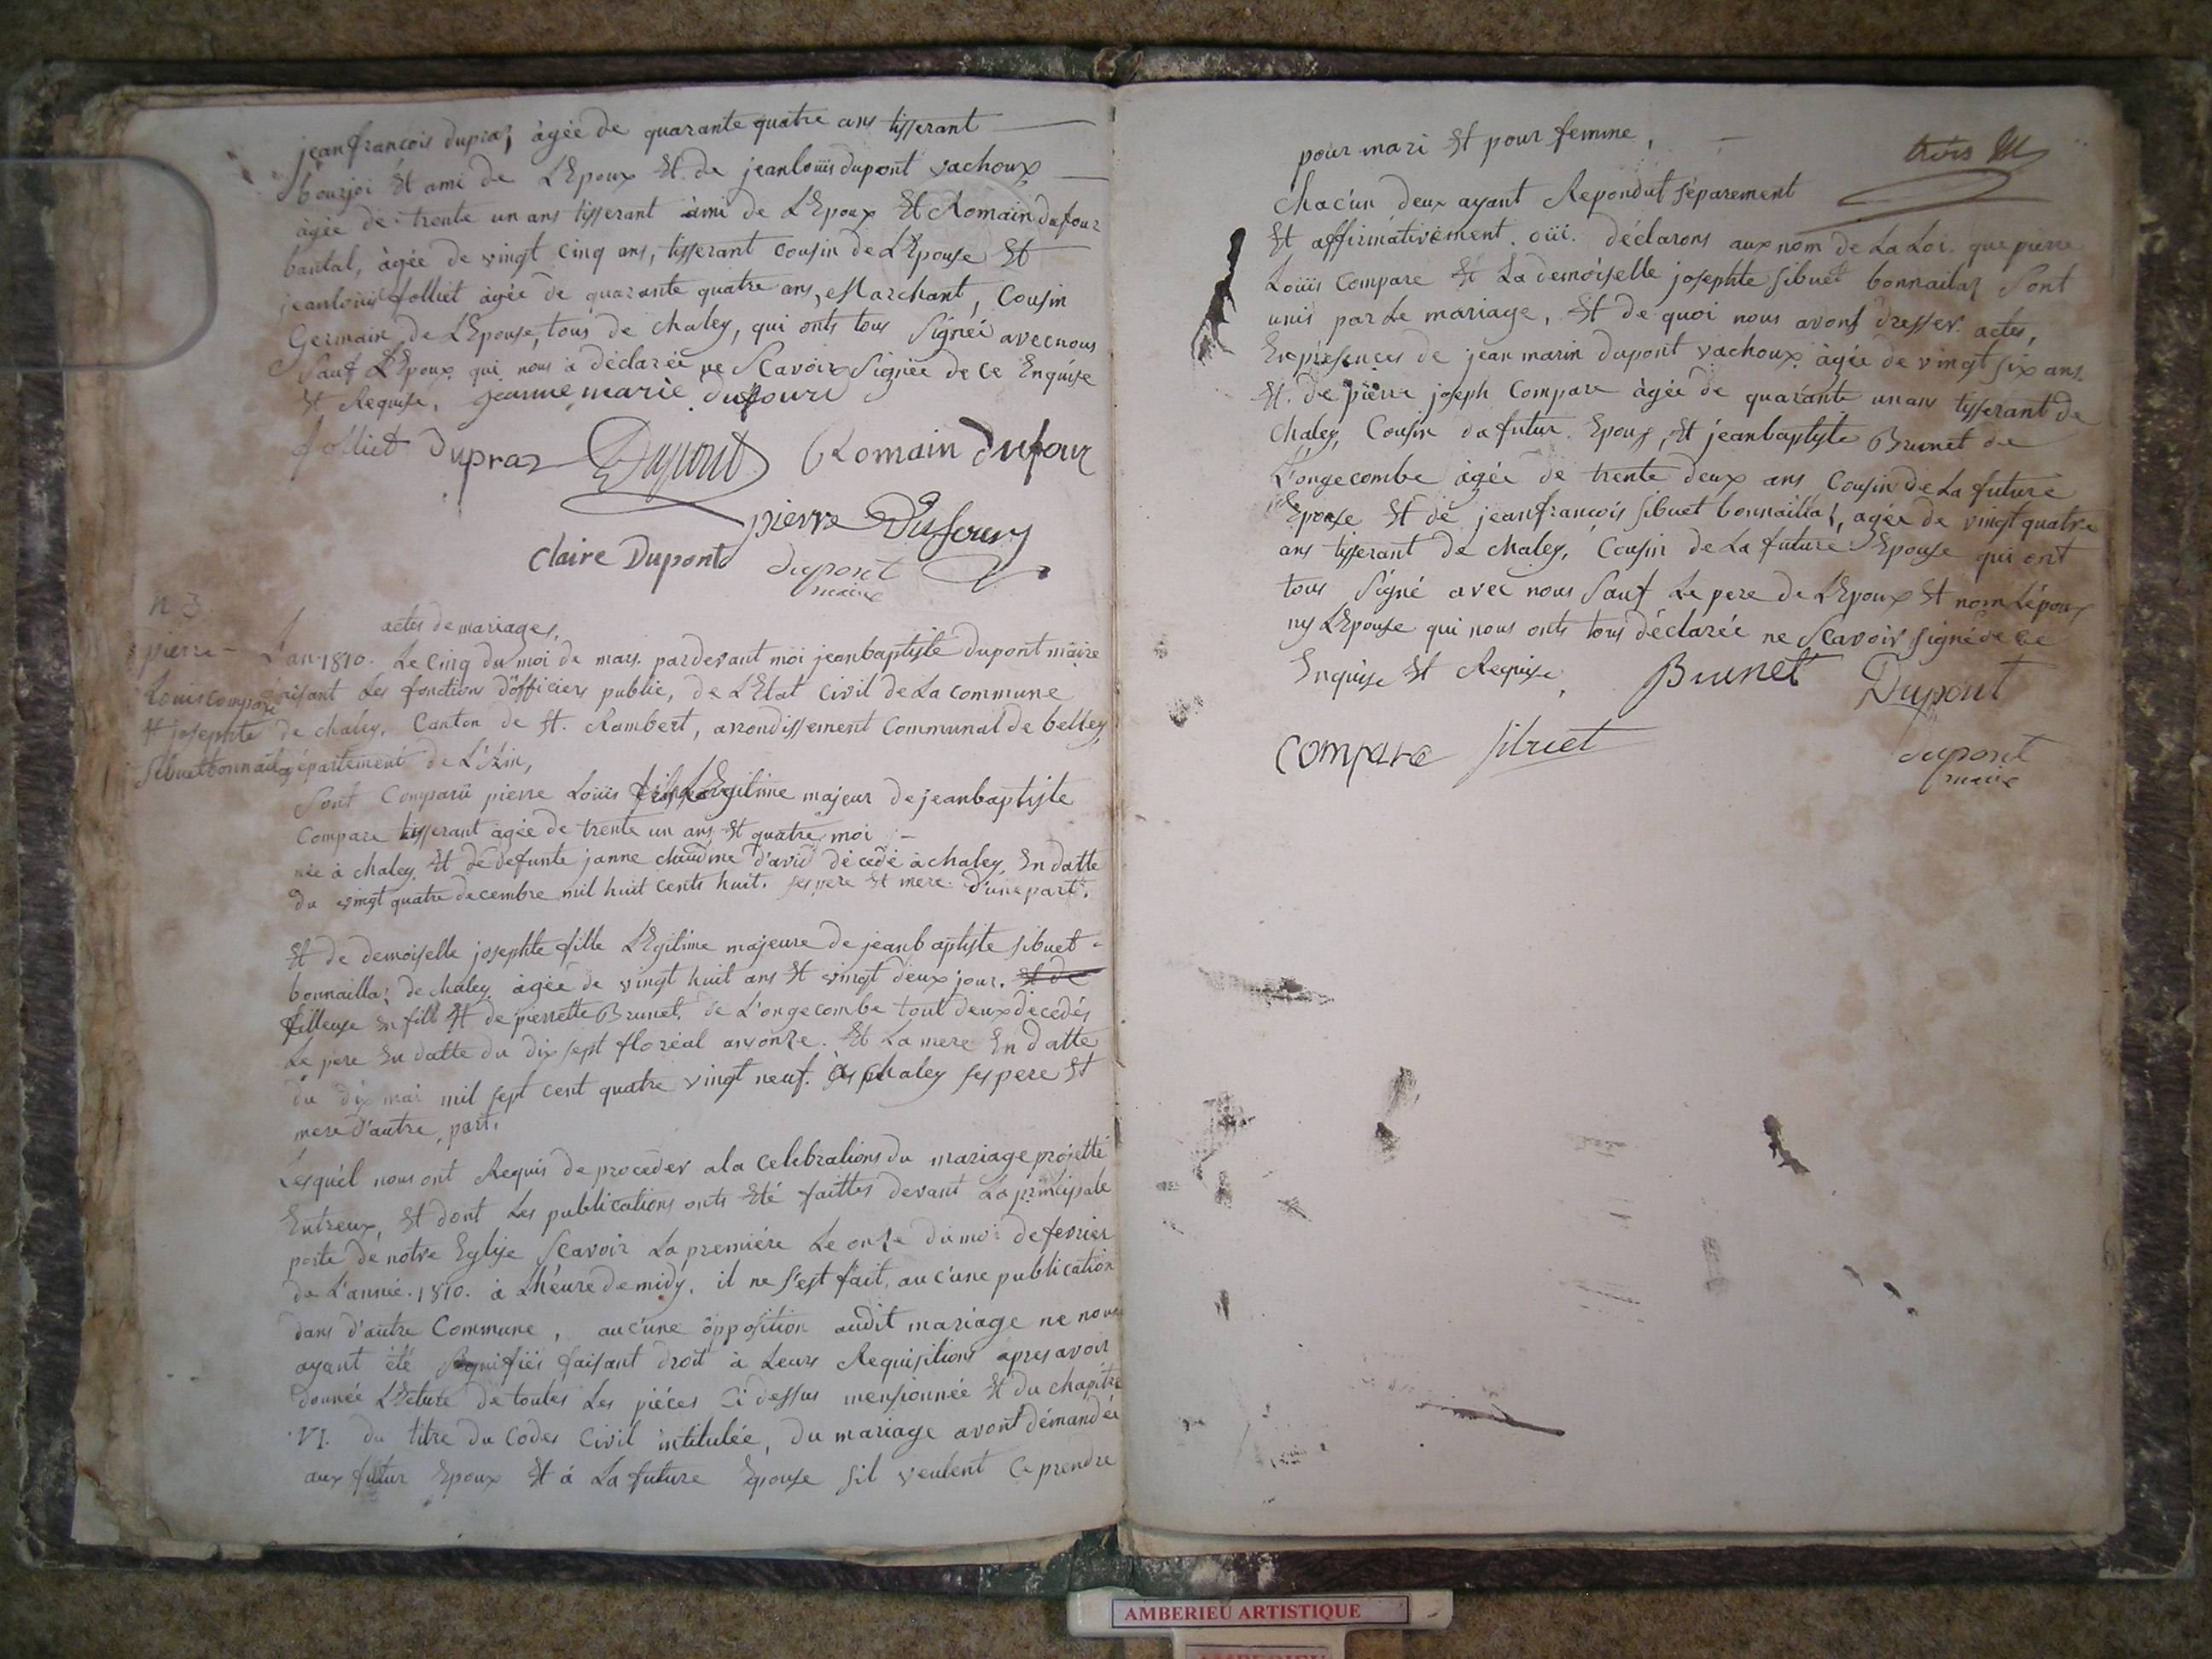 jeanfrancois dupraz, àgée de quarante quatre ans tisserant
bourjoi Et ami de L'Epoux Et de jeanloüis dupont vachoux
àgée de trente un ans tisserant àmi de L'Epoux Et Romain dufour
bantal, àgée de vingt cinq ans, tisserant cousin de L'Epouse Et
jeanloüis folliet àgée de quarante quatre ans, Marchant, Cousin
Germain de L'Epouse, tous de chaley, qui onts tous Signéé avec nous
Sauf L'Epoux qui nous à déclarée ne Scavoir Signée de ce Enquise
Et Requise. jeanne marie dufour
folliet Dupraz Dupont Romain dufour
pierre Dufour
Claire Dupont dupont
maire
n 3
actes de mariages,
pierre L'an 1810. Le cinq du moi de mars pardevant moi jeanbaptiste dupont maire
Louis compare faisant Les fonctions d'officiers public, de L'Etat Civil de La commune
Et josephte de chaley, Canton de St. Rambert, arrondissement Communal de belley,
Sibuet bonnailaz département de L'Ain,
Sont Comparü pierre Loüis fils LEgitime majeur de jeanbaptiste
Compare tisserant àgée de trente un ans Et quatre moi
née à chaley, Et de defunte janne claudine d'avid décedé à chaley, En datte
du vingt quatre decembre mil huit cents huit. ses pere Et mere. d'une part.
Et de demoiselle josephte fille LEgitime majeure de jeanbaptiste sibuet
bonnaillaz de chaley àgée de vingt huit ans Et vingt deux jour. Et de
filleuse En fill Et de pierrette Brunet, de L'ongecombe tout deux decedés
Le pere En datte du dix sept floréal an onze. Et La mere En datte
du dix mai mil sept cent quatre vingt neuf. à chaley ses pere Et
mere d'autre part.
Lesquél nous ont Requis de proceder a la Celebrations du mariage projetté
Entreux, Et dont Les publications onts Eté faittes devant La principale
porte de notre Eglise Scavoir La premiére Le onze du moi de fevrier
de L'année. 1810. à L'héure de midy. il ne s'est fait, auc'une publication
dans d'autre Commune, auc'une opposition audit mariage ne nous
ayant été Signifiéé faisant droit à Leurs Requisitions àpres avoir
donnée LEcture de toutes Les piéces Ci dessus mensionnée Et du chapitre
VI. du titre du Codes Civil intitulée, Du mariage avont démandée
aux futur Epoux Et à La future Epouse s'il veulent Ce prendre
pour mari Et pour femme,
trois
Chac'un deux ayant Repondut séparement
Et affirmativement. oüi. déclarons aux nom de La Loi. que pierre
Loüis Compare Et La demoiselle josephte sibuet bonnailaz Sont
unis par Le mariage, Et de quoi nous avont dresser actes,
En présences de jean marin dupont vachoux àgée de vingt six ans
Et. de pierre joseph Compare àgée de quarante un ans tisserant de
Chaley, Cousin du futur Epoux, Et jeanbaptiste Brunet de
L'ongecombe àgée de trente deux ans Cousin de La future
Epouse Et de jeanfrançois sibuet bonnaillaz, agée de vingt quatre
ans tisserant de chaley, Cousin de La future Epouse qui ont
tous Signé avec nous Sauf Le pere de L'Epoux Et nom L'époux
ny L'Epouse qui nous onts tous déclarée ne Scavoir signé de ce
Enquise Et Requise, Brunet Dupont
Compare sibuet dupont
maire
AMBERIEU ARTISTIQUE
AMBERIEU